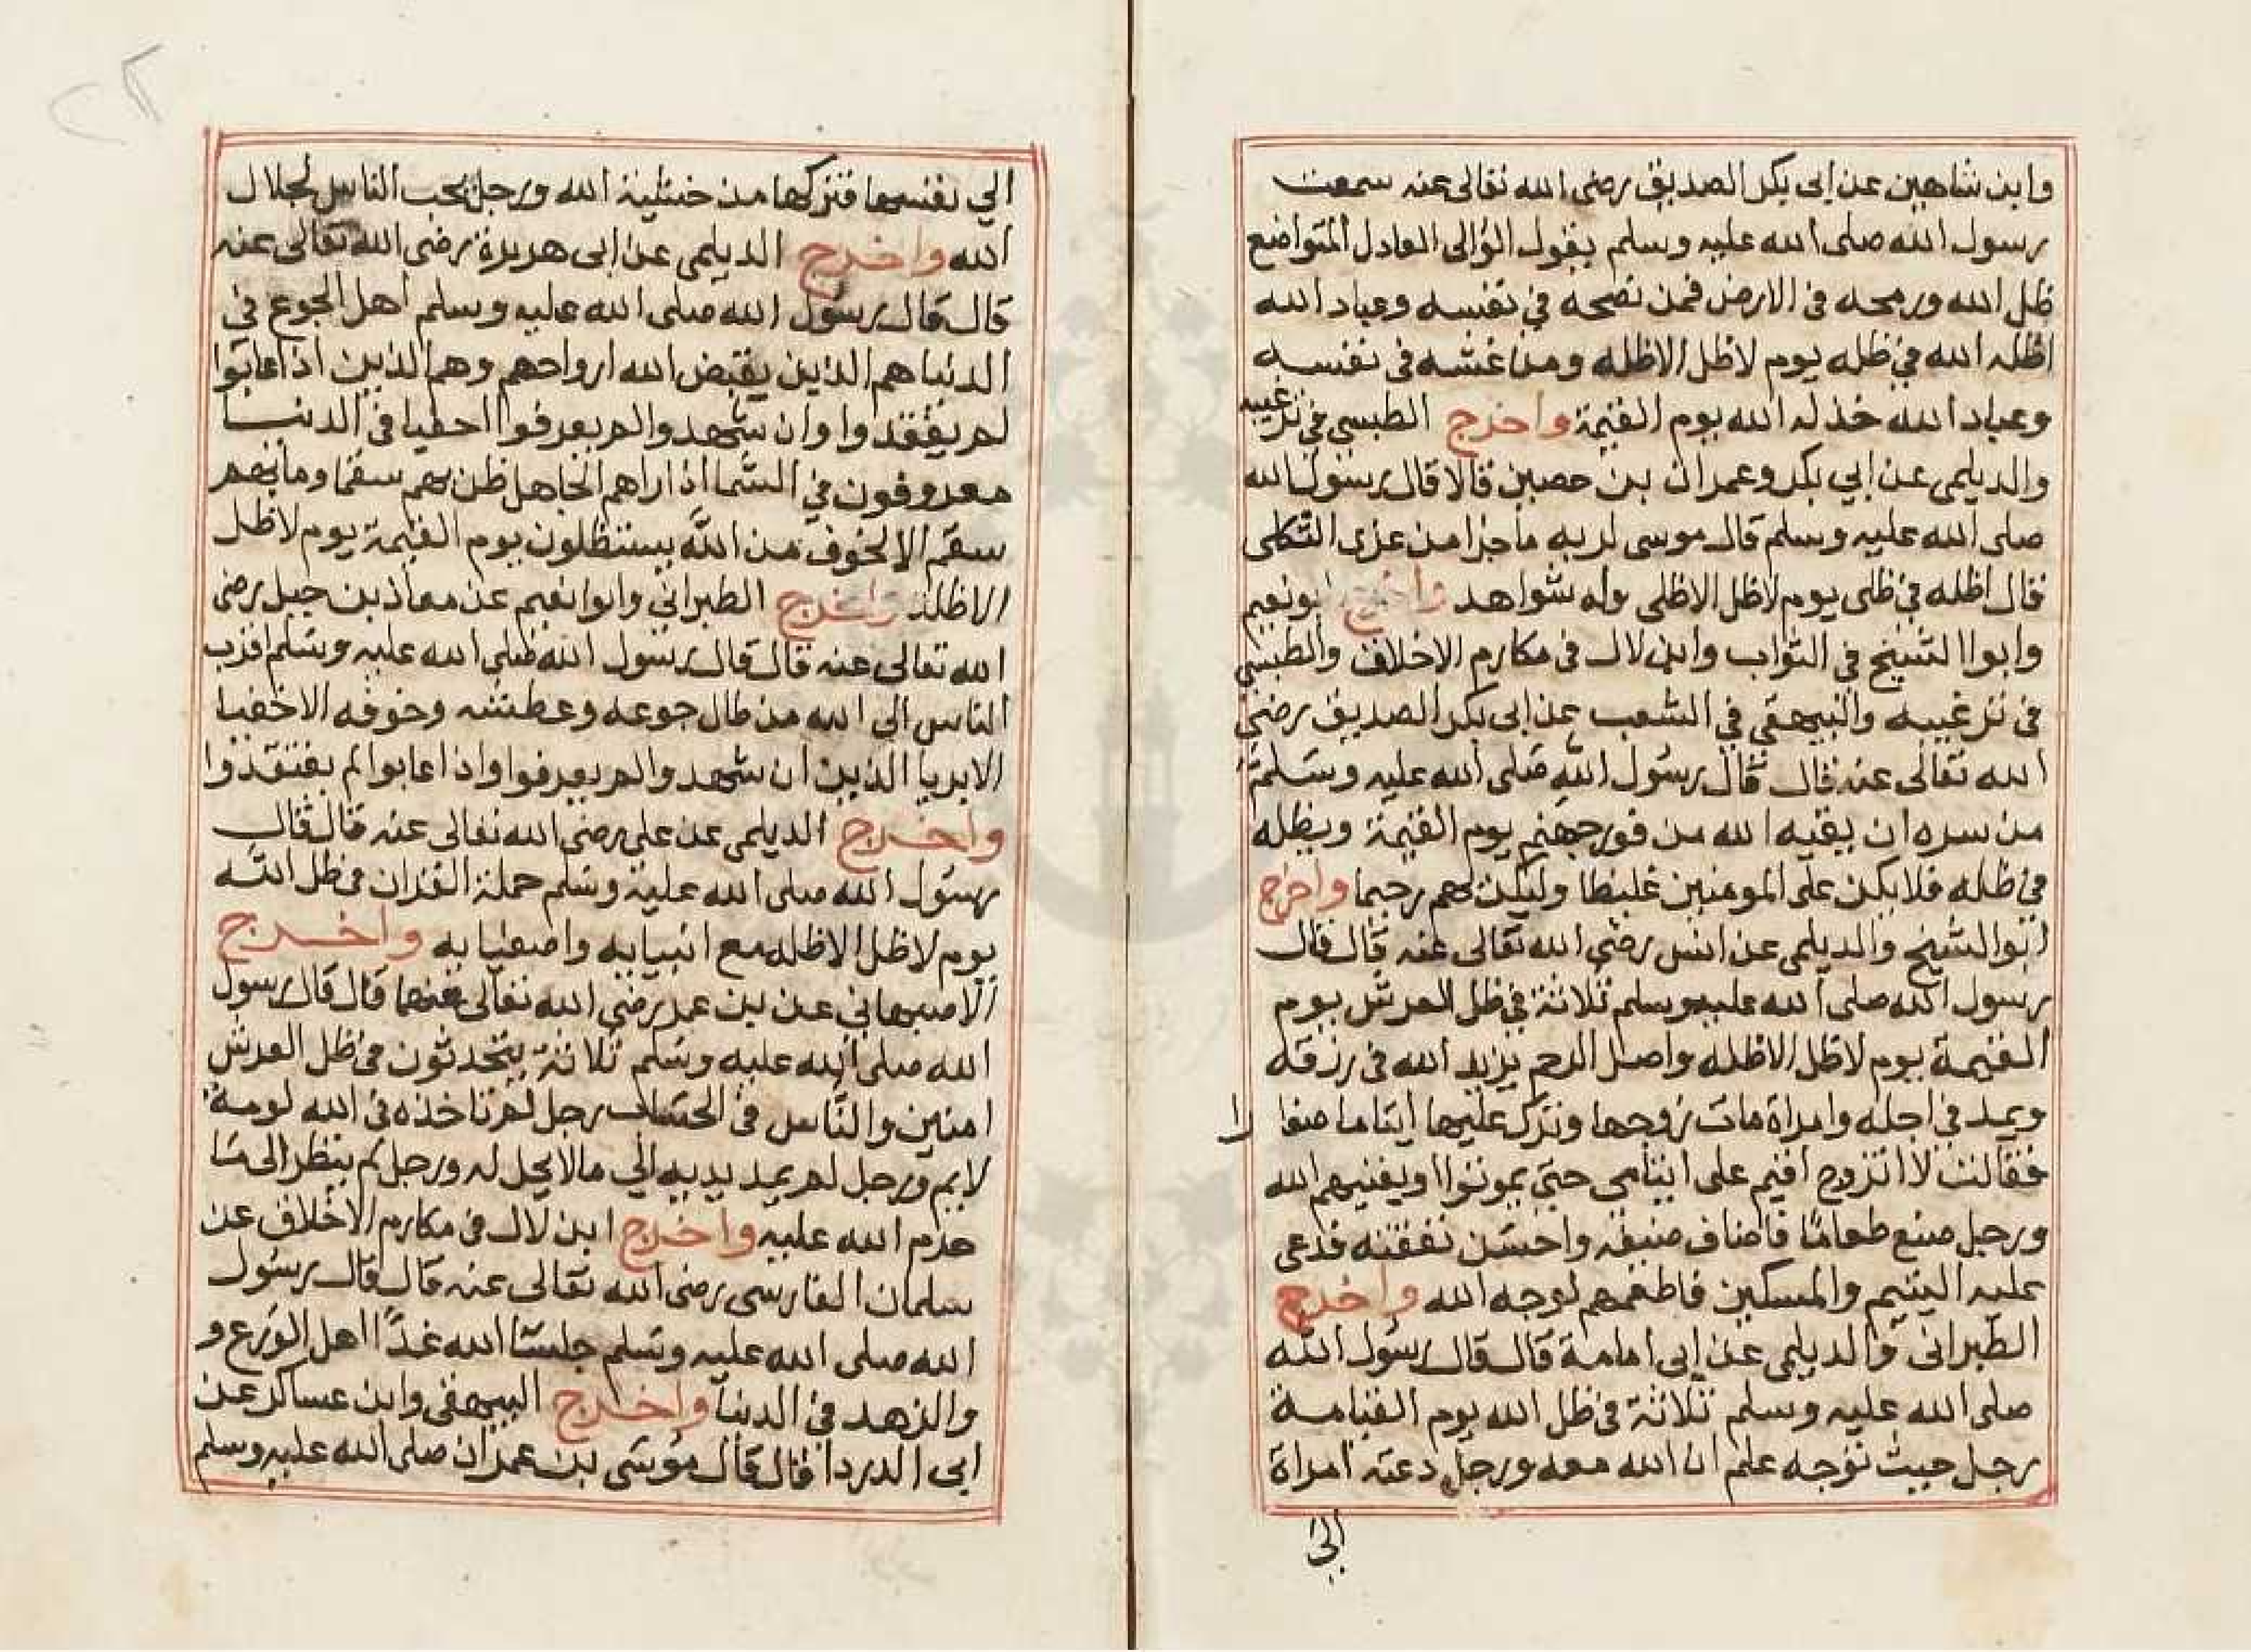 وابن شاهين عن ابى بكر الصديق رضى الله تعالى عنه سمعت
رسول الله صلى الله عليه وسلم يقول الوالى العادل المتواضع
ظل الله ورمحه فى الارض فمن نصحه في نفسه وعباد الله
اظله الله في ظله يوم لاظل الاظله ومن غشه فى نفسه
وعباد الله خذله الله يوم القيمة واخرج الطبسي في ترغيبه
والديلمى عن ابي بكر وعمران بن حصين قالا قال رسول الله
صلى الله عليه وسلم قال موسى لربه ماجزا من عزى الثكلى
قال اظله في ظلى يوم لاظل الاظلى وله شواهد واخرج ابونعيم
وابوا الشيخ في الثواب وابن لال فى مكارم الاخلاق والطبسي
في ترغيبه والبيهقي في الشعب عن ابى بكر الصديق رضي
الله تعالى عنه قال قال رسول الله صلى الله عليه وسلم
من سره ان يقيه الله من فورجهنم يوم القيمة ويظله
في ظله فلايكن على المومنين غليظا وليكن لهم رحيما واخرج
ابوالشيخ والديلمى عن انس رضي الله تعالى عنه قال قال
رسول الله صلى الله عليه وسلم ثلاثة في ظل العرش يوم
القيمة يوم لاظل الاظله واصل الرحم يزيد الله فى رزقه
ويمد في اجله وامراة مات زوجها وترك عليها ايتاما صغا را
فقالت لا اتزوج اقيم على ايتامى حتى يموتوا اويغنيهم الله
ورجل صنع طعاما فاضاف ضيفه واحسن نفقته فدعى
عليه اليتيم والمسكين فاطعمهم لوجه الله واخرج
الطبرانى والديلمى عن ابى امامة قال قال رسول الله
صلى الله عليه وسلم ثلاثة فى ظل الله يوم القيامة
رجل حيث توجه علم ان الله معه ورجل دعته امراة
الى
الي نفسها فتركها من خشية الله ورجل يحب الناس لجلال
الله واخرج الديلمى عن ابى هريرة رضى الله تعالى عنه
قال قال رسول الله صلى الله عليه وسلم اهل الجوع في
الدنيا هم الذين يقبض الله ارواحهم وهم الذين اذا غابوا
لم يفقدوا وان شهدوا لم يعرفوا اخفيا فى الدنيا
معروفون في السما اذا راهم الجاهل ظن بهم سقما ومابهم
سقم الا لخوف من الله يستظلون يوم القيمة يوم لاظل
الاظله واخرج الطبراني وابوا نعيم عن معاذ بن جبل رضى
الله تعالى عنه قال قال رسول الله صلى الله عليه وسلم اقرب
الناس الى الله من طال جوعه وعطشه وخوفه الاخفيا
الابريا الذين ان شهدوا لم يعرفوا واذا غابوا لم يفتقدوا
واخرج الديلمى عن على رضى الله تعالى عنه قال قال
رسول الله صلى الله عليه وسلم حملة القران فى ظل الله
يوم لاظل الاظله مع انبيايه واصفيايه واخرج
الاصبهاني عن بن عمر رضي الله تعالى عنهما قال قال رسول
الله صلى الله عليه وسلم ثلاثة يتحدثون فى ظل العرش
امنين والناس فى الحساب رجل لم تاخذه فى الله لومة
لايم ورجل لم يمد يديه الي مالا يحل له ورجل لم ينظر الى ما
حرم الله عليه واخرج ابن لال فى مكارم الاخلاق عن
سلمان الفارسى رضى الله تعالى عنه قال قال رسول
الله صلى الله عليه وسلم جلسا الله غدا اهل الورع و
والزهد فى الدنيا واخرج البيهقى وابن عساكر عن
ابى الدردا قال قال موسى بن عمران صلى الله عليه وسلم